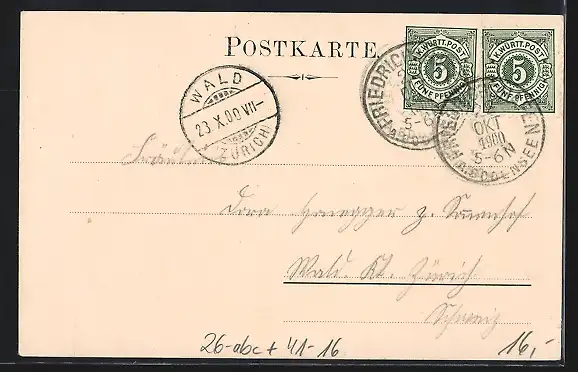 POSTKARTE.
K.WÜRTT.POST
5
FÜNF PFENNIG
K.WÜRTT.POST
5
FÜNF PFENNIG
FRIEDRICH
5-6
OKT
1900
5-6N
WALD
23 X.00 VII-
(ZÜRICH)
Fräulein
Dora Honegger z. Sonnenhof
Wald. Kt. Zürich
Schweiz
26-abc+ 41-16
16,-